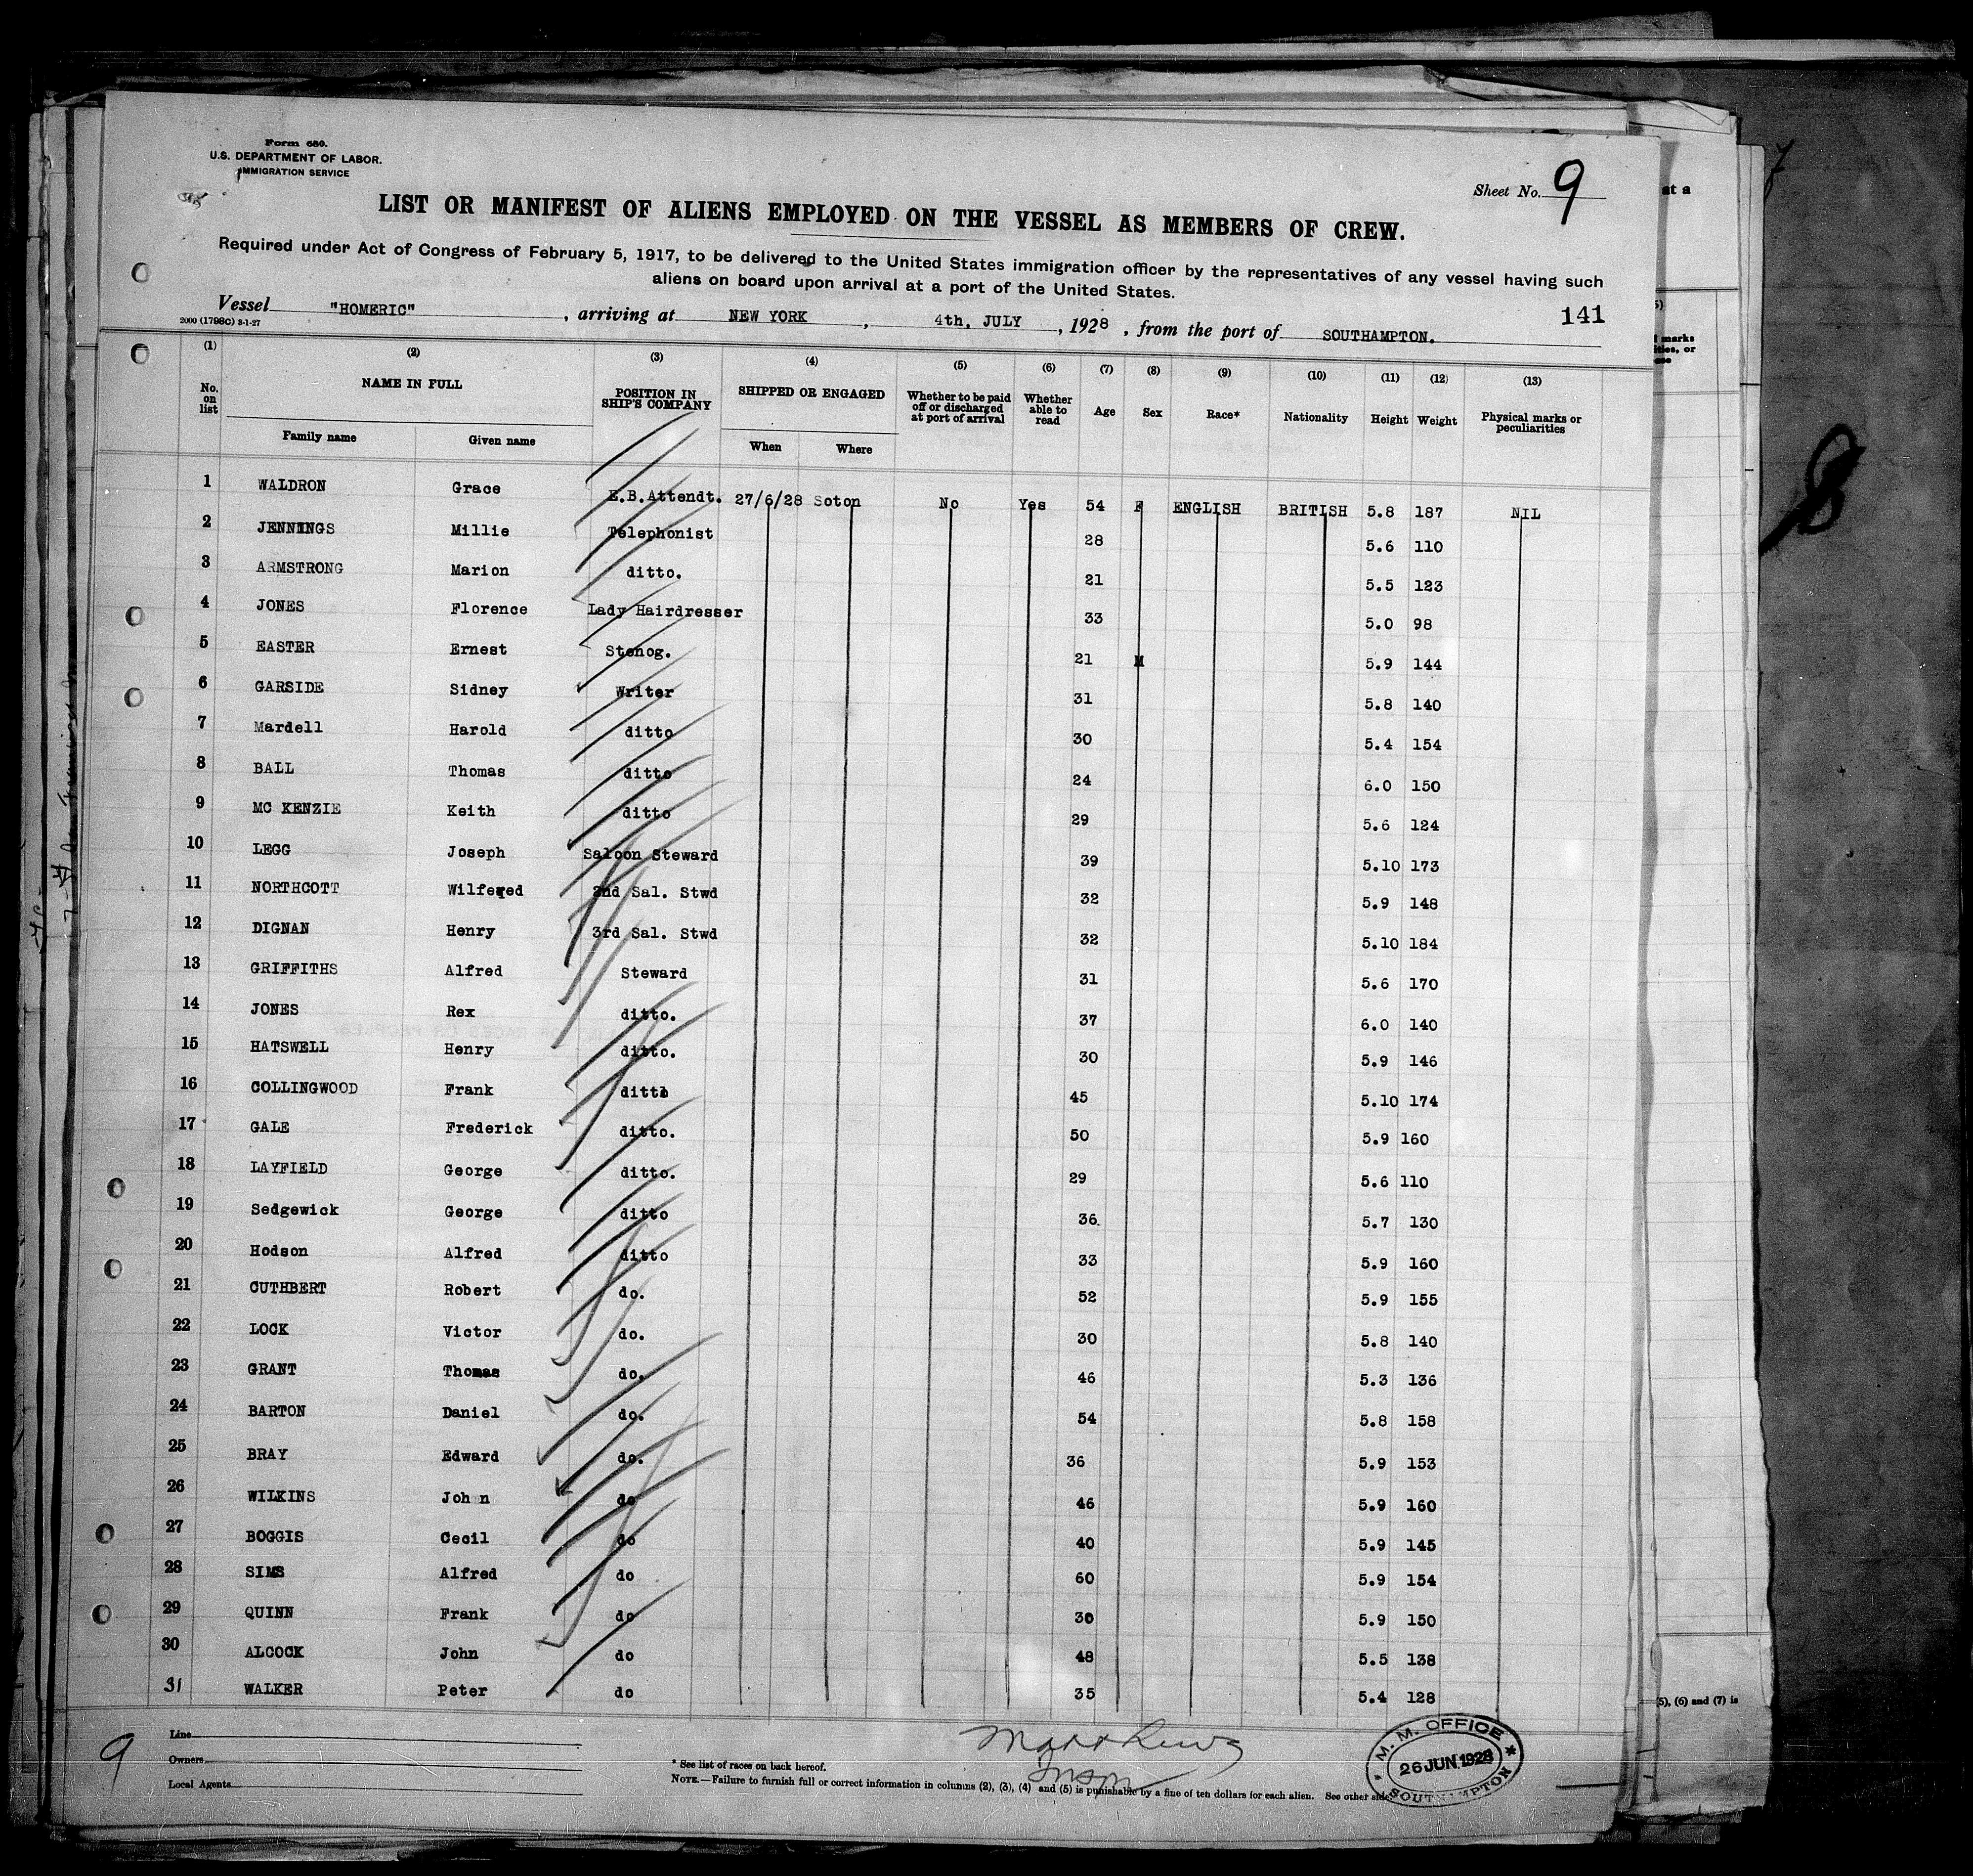 Form 680.
U.S. DEPARTMENT OF LABOR.
IMMIGRATION SERVICE
Sheet No. 9
at a
LIST OR MANIFEST OF ALIENS EMPLOYED ON THE VESSEL AS MEMBERS OF CREW.
Required under Act of Congress of February 5, 1917, to be delivered to the United States immigration officer by the representatives of any vessel having such
aliens on board upon arrival at a port of the United States.
141
Vessel "HOMERIC", arriving at NEW YORK, 4th, JULY, 1928, from the port of SOUTHAMPTON.
2000 (1798C) 3-1-27
(1) (2) (3) (4) (5) (6) (7) (8) (9) (10) (11) (12) (13)
No. on list NAME IN FULL POSITION IN SHIP'S COMPANY SHIPPED OR ENGAGED Whether to be paid off or discharged at port of arrival Whether able to read Age Sex Race* Nationality Height Weight Physical marks or peculiarities
Family name Given name When Where
1 WALDRON Grace E.B.Attendt. 27/6/28 Soton No Yes 54 F ENGLISH BRITISH 5.8 187 NIL
2 JENNINGS Millie Telephonist 28 5.6 110
3 ARMSTRONG Marion ditto. 21 5.5 123
4 JONES Florence Lady Hairdresser 33 5.0 98
5 EASTER Ernest Stenog. 21 M 5.9 144
6 GARSIDE Sidney Writer 31 5.8 140
7 Mardell Harold ditto 30 5.4 154
8 BALL Thomas ditto 24 6.0 150
9 MC KENZIE Keith ditto 29 5.6 124
10 LEGG Joseph Saloon Steward 39 5.10 173
11 NORTHCOTT Wilfered 2nd Sal. Stwd 32 5.9 148
12 DIGNAN Henry 3rd Sal. Stwd 32 5.10 184
13 GRIFFITHS Alfred Steward 31 5.6 170
14 JONES Rex ditto. 37 6.0 140
15 HATSWELL Henry ditto. 30 5.9 146
16 COLLINGWOOD Frank ditto 45 5.10 174
17 GALE Frederick ditto. 50 5.9 160
18 LAYFIELD George ditto. 29 5.6 110
19 Sedgewick George ditto 36. 5.7 130
20 Hodson Alfred ditto 33 5.9 160
21 CUTHBERT Robert do. 52 5.9 155
22 LOCK Victor do. 30 5.8 140
23 GRANT Thomas do. 46 5.3 136
24 BARTON Daniel do. 54 5.8 158
25 BRAY Edward do. 36 5.9 153
26 WILKINS Joh n do 46 5.9 160
27 BOGGIS Cecil do 40 5.9 145
28 SIMS Alfred do 60 5.9 154
29 QUINN Frank do 30 5.9 150
30 ALCOCK John do 48 5.5 138
31 WALKER Peter do 35 5.4 128
(5), (6) and (7) is
9
Line
Owners
Local Agents
* See list of races on back hereof.
NOTE.—Failure to furnish full or correct information in columns (2), (3), (4) and (5) is punishable by a fine of ten dollars for each alien. See other side
M. M. OFFICE
26 JUN 1928
SOUTHAMPTON